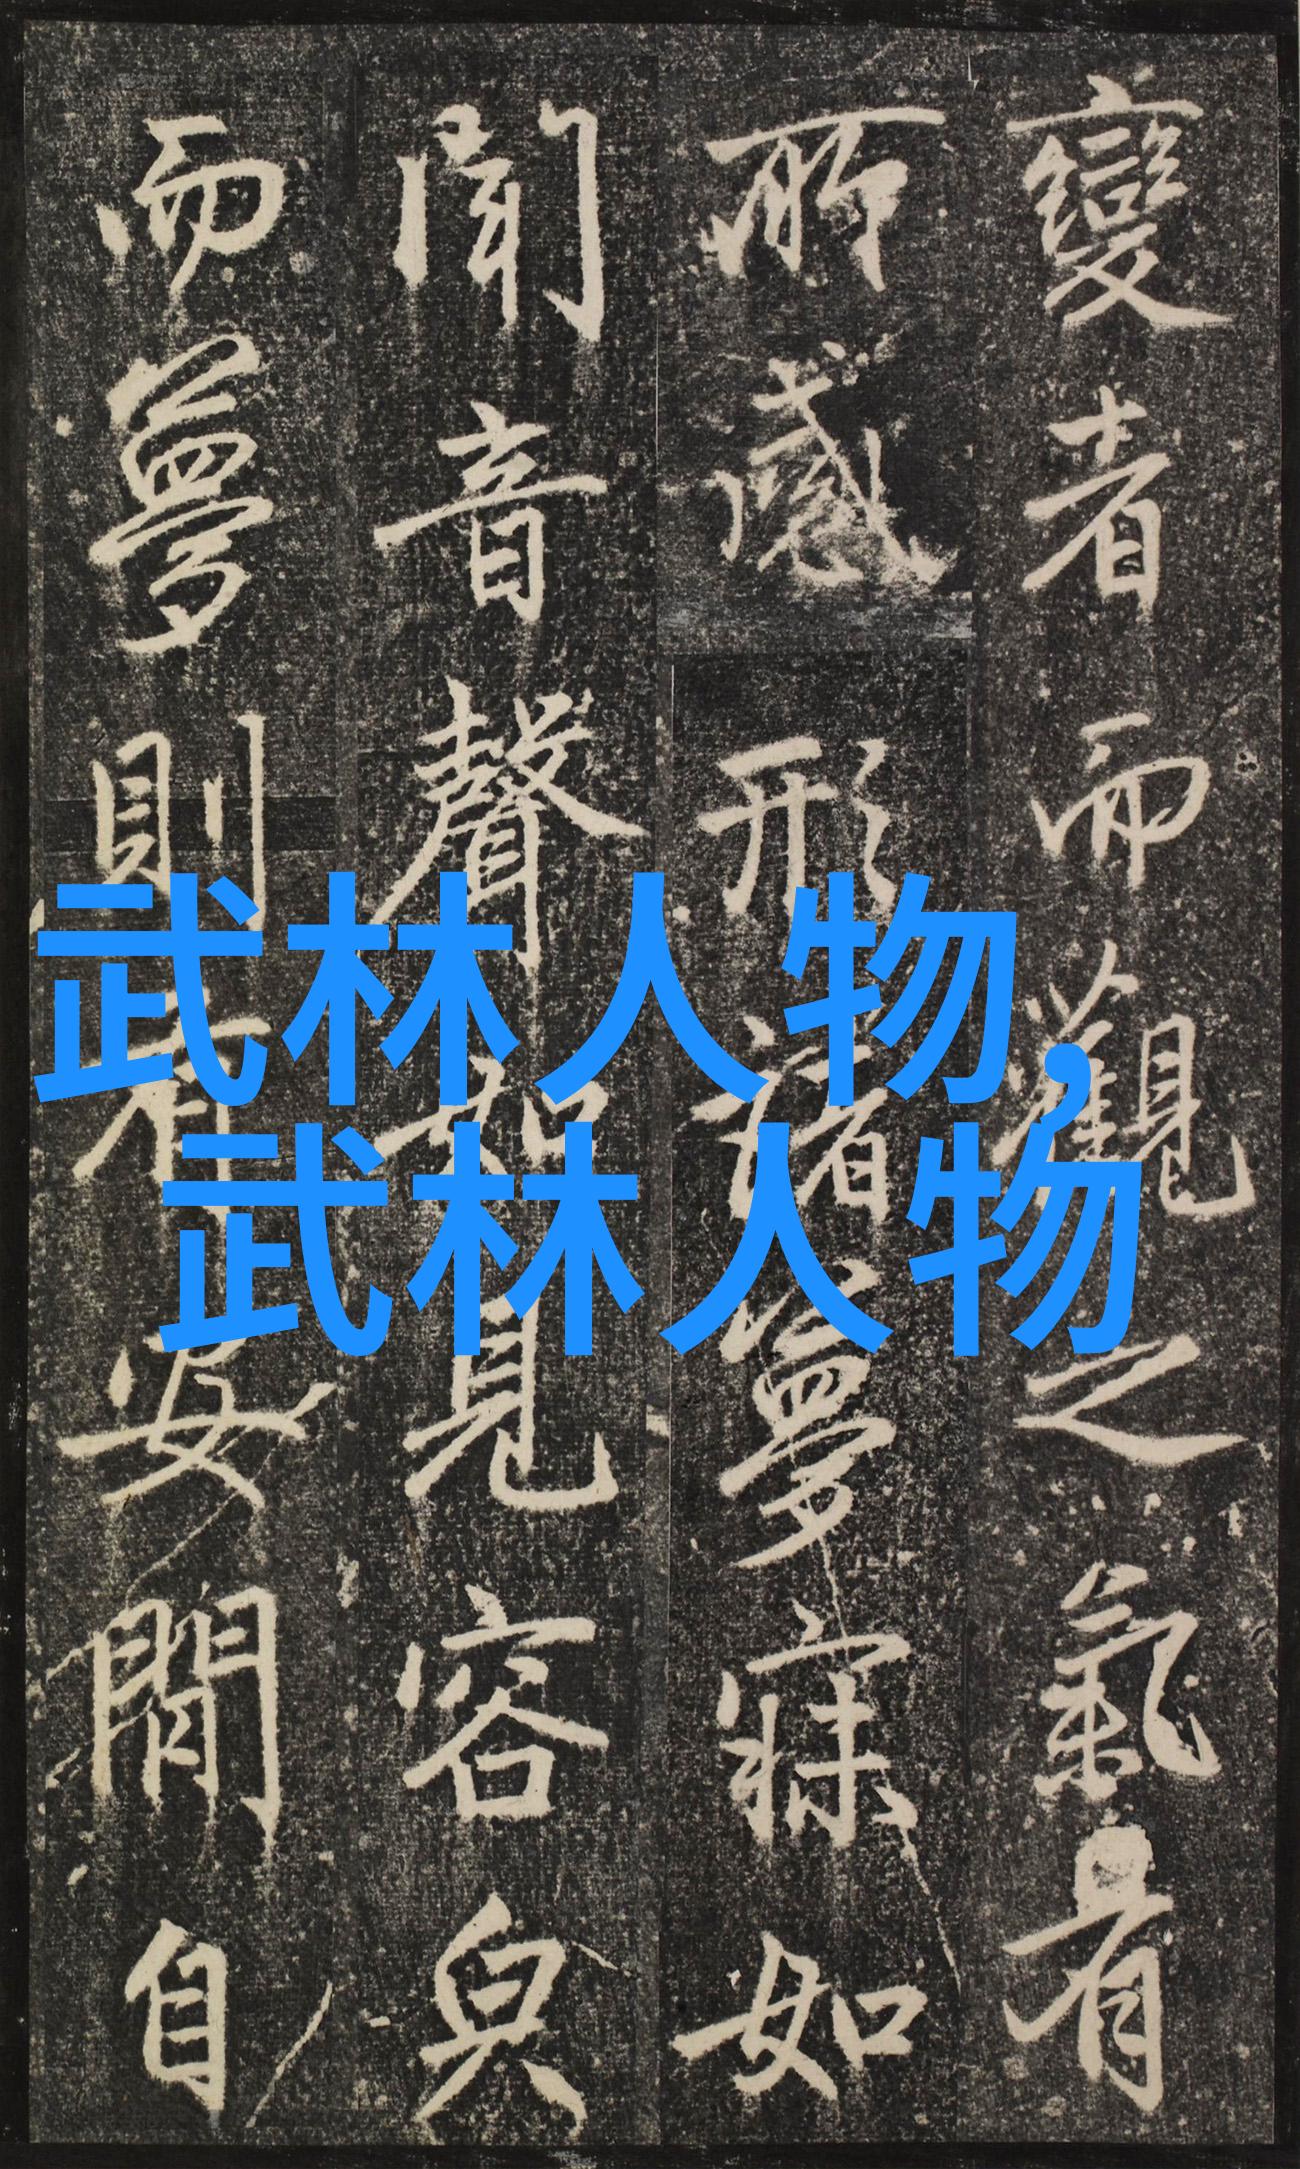 變者而觀之氣有
所感形諸夢寐如
聞音聲如見容皃
而夢則有安閒自
武林人物,
武林人物